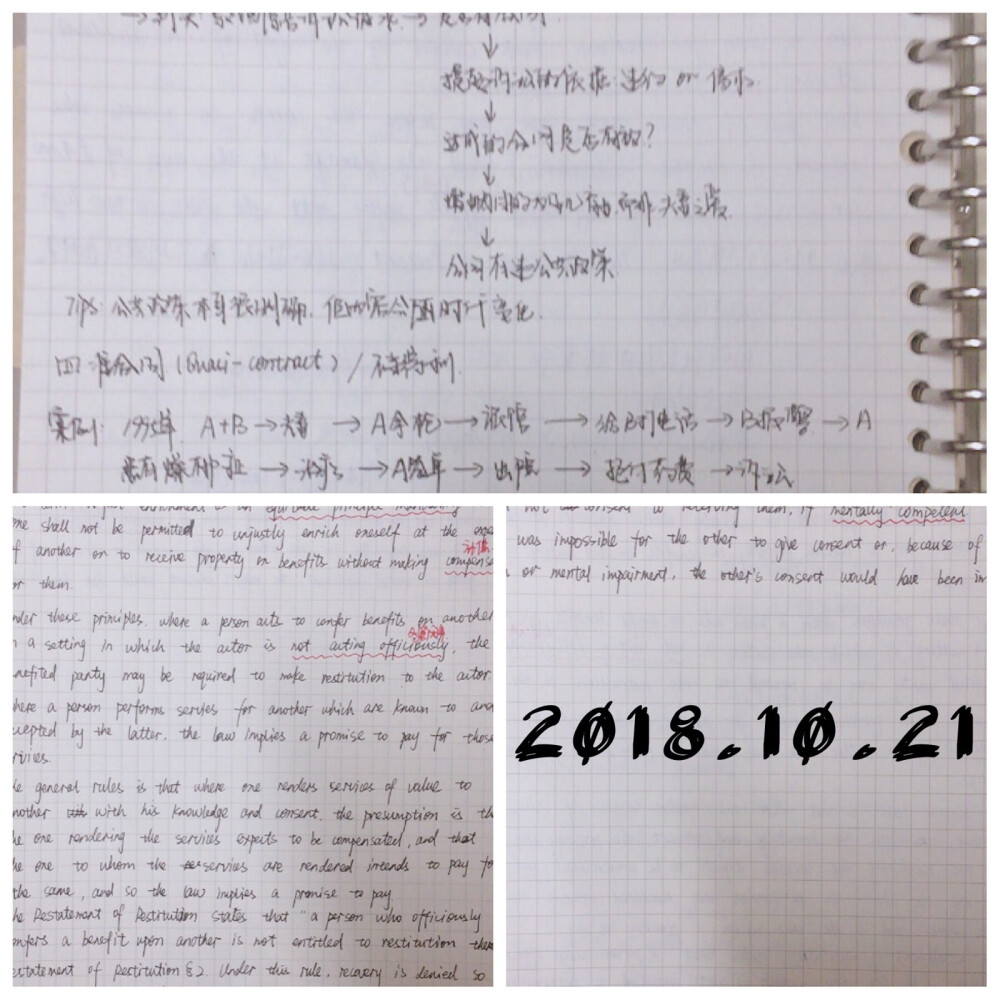 ↓
提起诉讼的依据:违约 or 侵权.
↓
达成的合同是否有效?
↓
↓
合同有违公共政策
Tips: 公共政策本身很明确. 但内容会随时代变化.
四. 准合同 (Quaci-contract) / 不当得利.
案例: 1995年. A+B → 夫妻 → A余枪 → 旅馆 → 给B打电话 → B报警 → A
患有爆种症 → 治疗 → A签单 → 出院 → 拒付款费 → 诉讼
one shall not be permitted to unjustly enrich oneself at the
of another on to receive property on benefits without making
or them.
under these principles. where a person acts to confer benefits on another
in a setting in which the actor is not acting officiously, the
benefited party may be required to make restitution to the actor.
where a person performs servies for another which are known to and
accepted by the latter. the law implies a promise to pay for those
services.
the general rules is that where one renders services of value to
another with his knowledge and consent, the presumption is
the one rendering the services expects to be compensated, and that
the one to whom the services are rendered intends to pay for
the same, and so the law implies a promise to pay.
the Restatement of Restitution states that "a person who officiously
confers a benefit upon another is not entitled to restitution
Restatement of Restitution § 2. Under this rule, recovery is denied so
not consent to receiving them, if mentally competent
was impossible for the other to give consent or, because of
or mental impairment, the other's consent would have been
2018.10.21